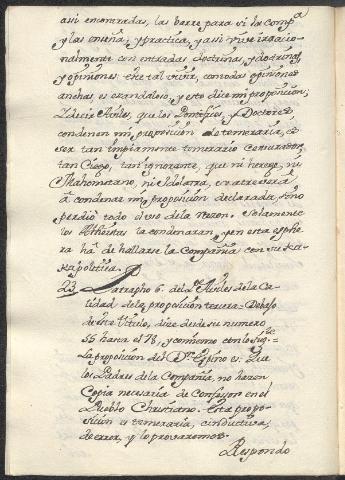 asi encontradas, las borre para si la Comp.ª
y las enseña, y practica, y asi vive irracio-
nalmente con entradas doctrinas, y doctrinas,
y opiniones: che tal vivir, con todas opiniones
anchas es escandaloso, y esto dice mi proposicion;
I decir Aviles, que los Pontifices, y Doctores
condenen mi proposicion de temeraria, es
ser tan impiamente temerario censurador,
tan Ciego, tan ignorante, que ni herege, ni
Mahometano, ni Idolatra, se atreverá
á condenar mi proposicion declarada, sino
perdio todo el uso de la razon. Solamente
los Atheistas la condenaran, y en esta esphe-
ra ha de hallarse la Compañia con su
politica.
23 Parrapho 6. del P.e Aviles de la Ca-
lidad de la proposicion tercera. Debajo
de este titulo, dize desde su numero
55 hasta el 78, y comienza con lo sig.te
La proposicion del D.r Espino es: Que
los Padres de la Compañia, no hazen
Copia necesaria de Confessores en el
Pueblo Christiano. Esta propo-
sicion es temeraria, e inductiva
de error, y lo provaremos.
Respondo